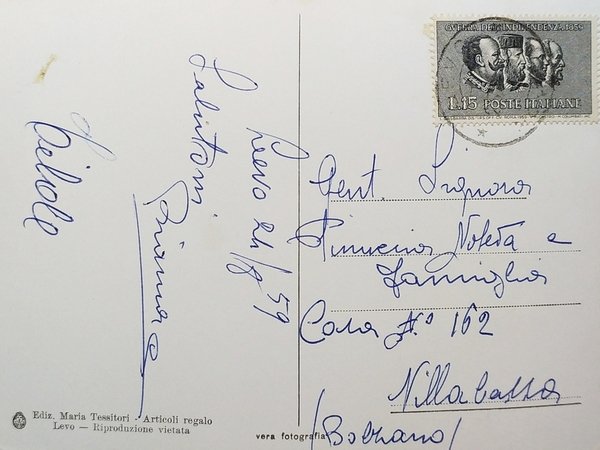 GUERRA DELL'INDIPENDENZA 1859
L.15 POSTE ITALIANE
Levo 24/8 59
Salutoni
Gent. Signora
Noteda e
famiglia
Casa N° 162
Villabassa
(Bolzano)
Ediz. Maria Tessitori - Articoli regalo
Levo — Riproduzione vietata
vera fotografia